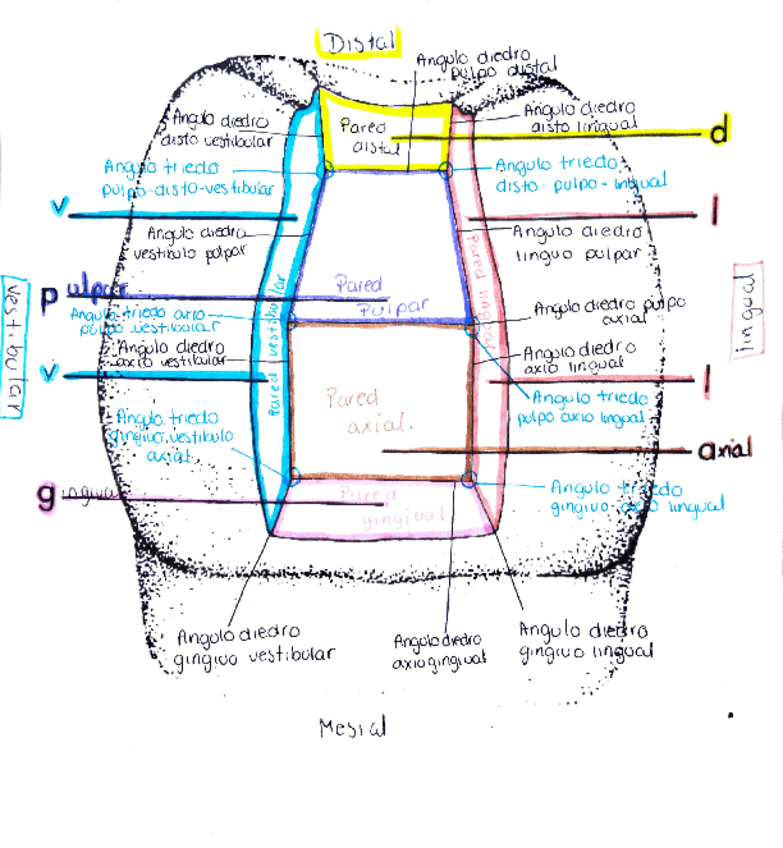 Distal
Angulo diedro
pulpo distal
Angulo diedro
disto vestibular
Pared
distal
Angulo diedro
disto lingual
d
Angulo triedo
pulpo-disto-vestibular
Angulo triedo
disto-pulpo-lingual
v
l
Angulo diedro
vestibulo pulpar
Angulo diedro
linguo pulpar
Pared vestibular
Pared lingual
Pared
Pulpar
pulpar
vestibular
lingual
Angulo triedo axio
pulpo vestibular
Angulo diedro pulpo
axial
Angulo diedro
axio vestibular
Angulo diedro
axio lingual
v
l
Pared
axial.
Angulo triedo
pulpo axio lingual
Angulo triedo
gingivo vestibulo
axial
axial
gingival
Pared
gingival
Angulo triedo
gingivo axio lingual
Angulo diedro
gingivo vestibular
Angulo diedro
axiogingival
Angulo diedro
gingivo lingual
Mesial